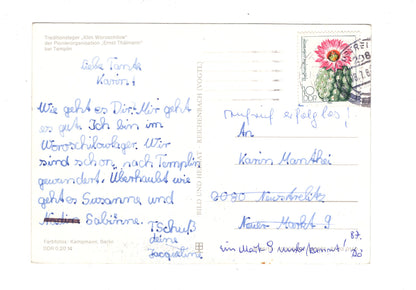 Traditionslager „Klim Woroschilow"
der Pionierorganisation „Ernst Thälmann"
bei Templin
Liebe Tante
Karin!
Wie geht es Dir? Mir geht
es gut. Ich bin im
Woroschilowlager. Wir
sind schon nach Templin
gewandert. Überhaubt wie
geht es Susanne und
Sabinne. Tschuß
deine
Jacqueline
BILD UND HEIMAT REICHENBACH (VOGTL)
10
DDR
Anruf erfolglos!
An
Karin Manthei
2080 Neustrelitz
Neuer Markt 9
im Markt 9 unbekannt!